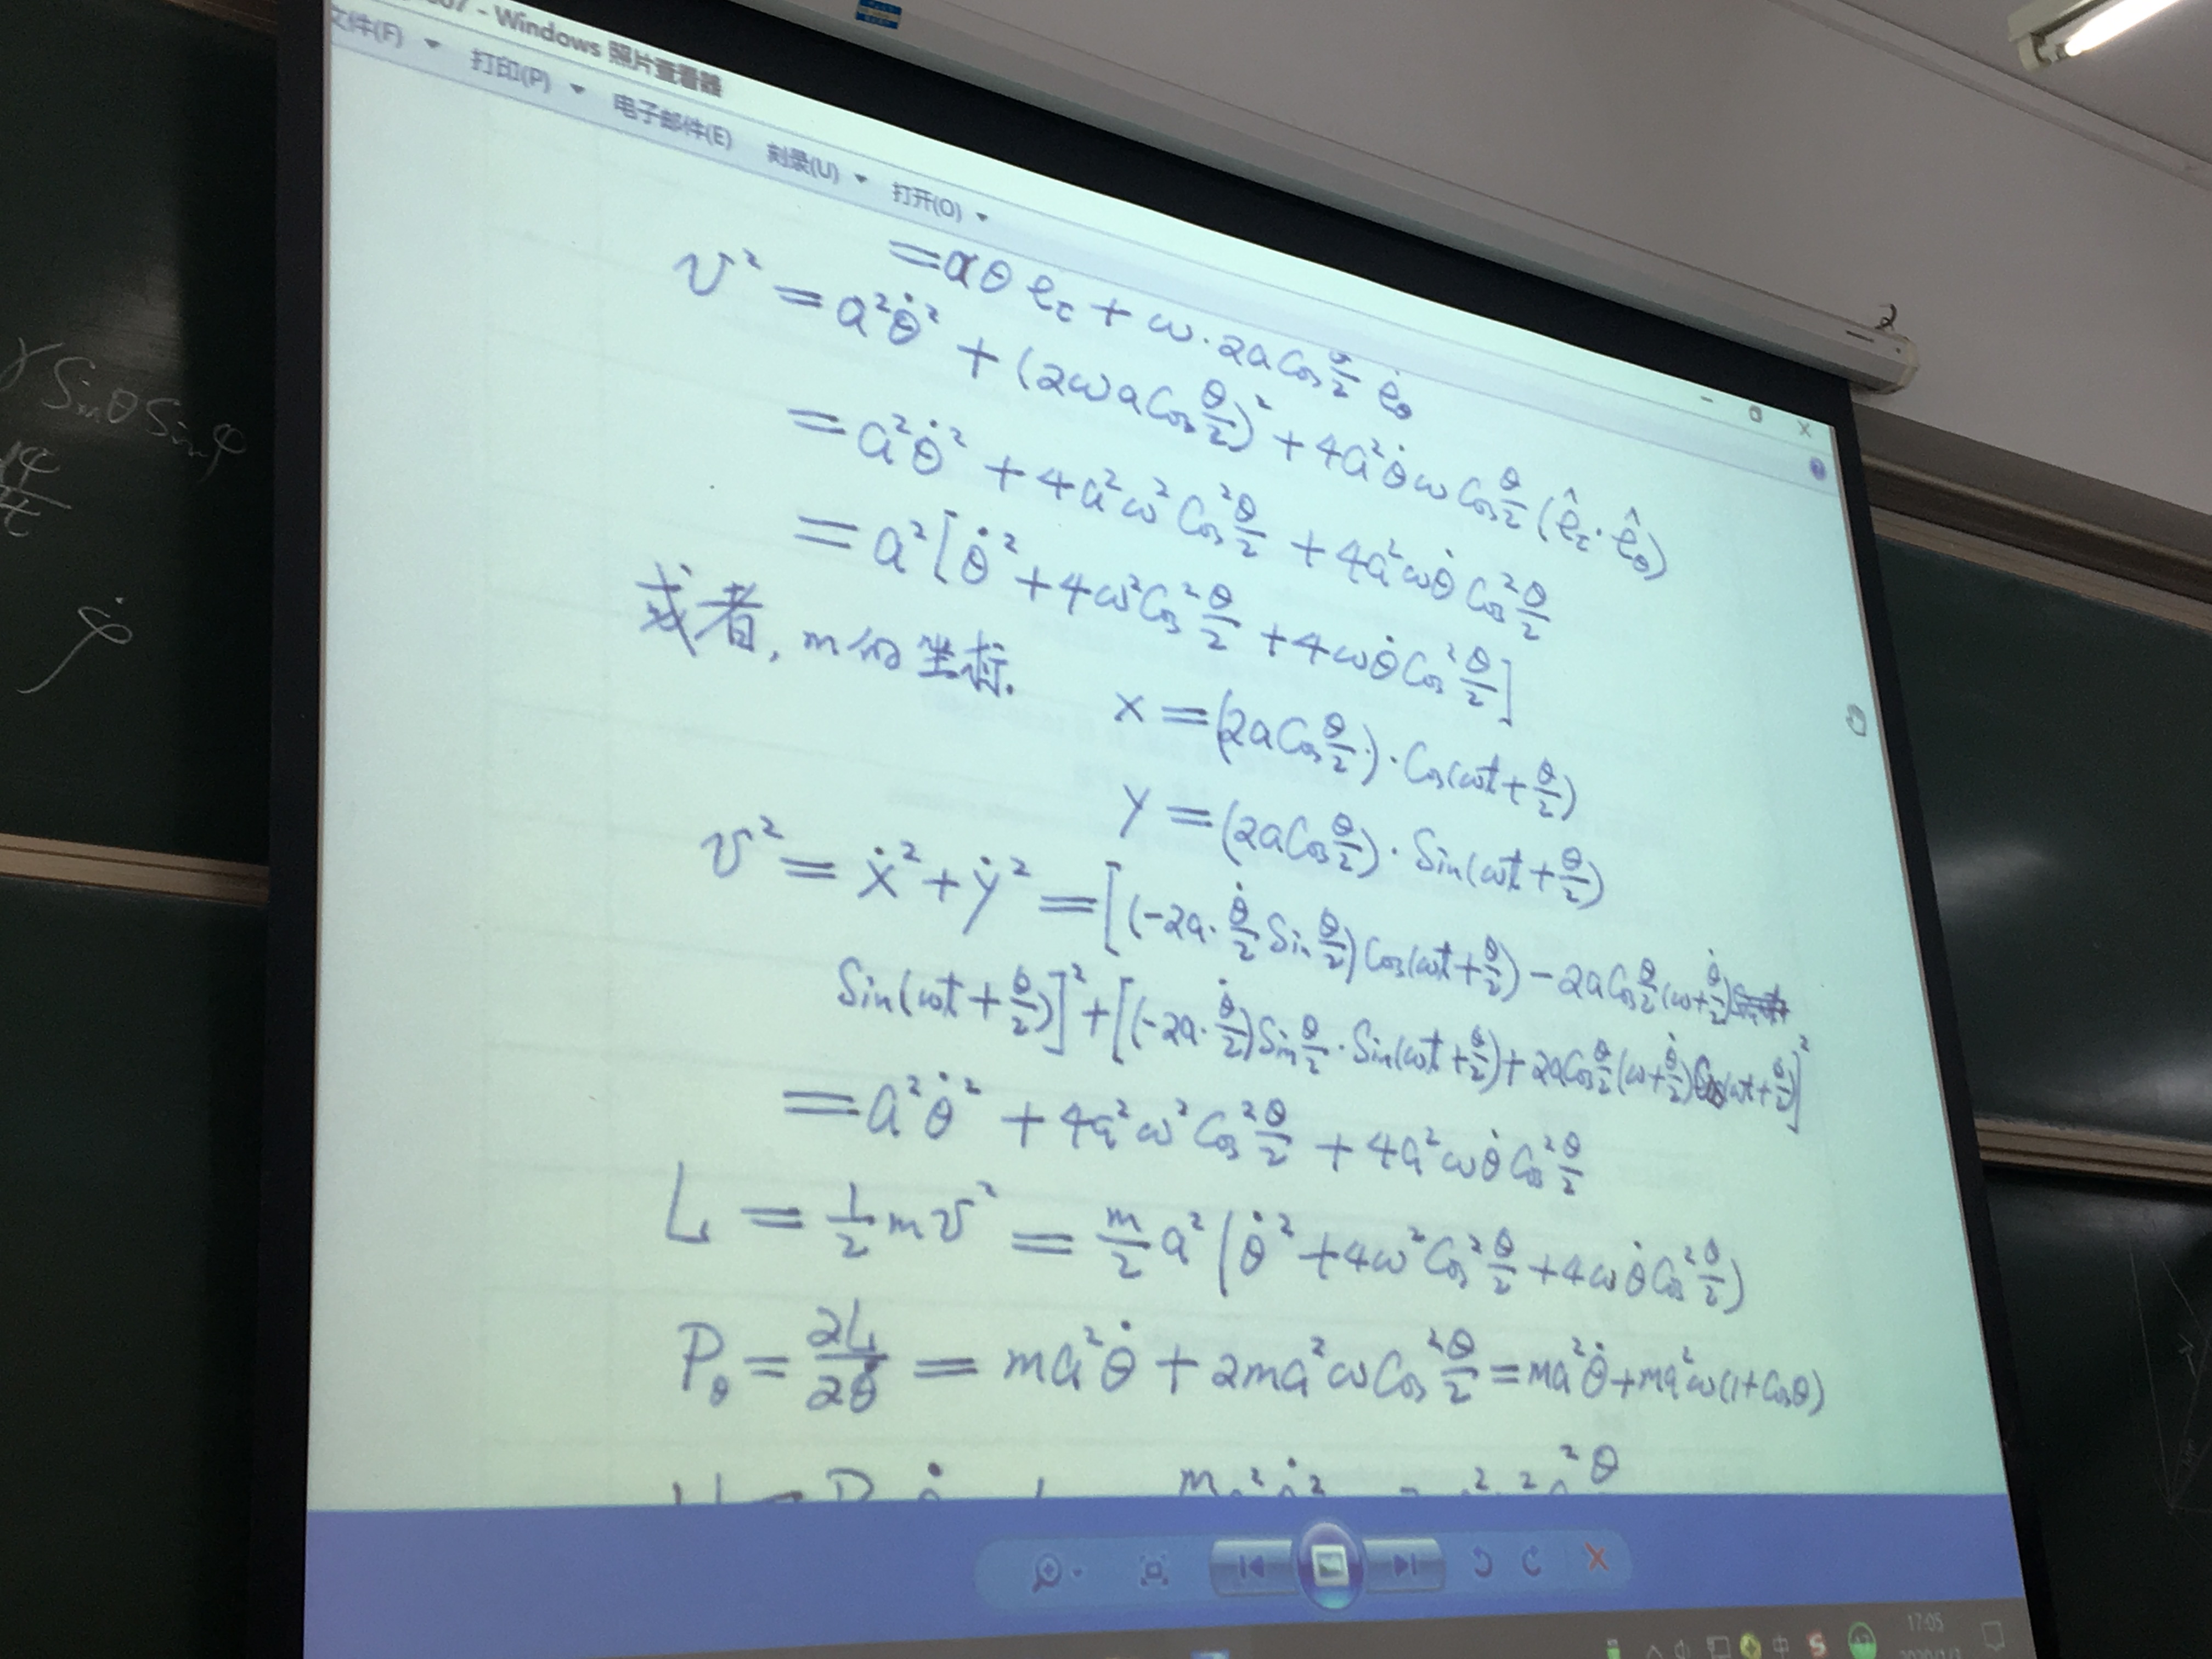 - Windows 照片查看器
文件(F) 打印(P) 电子邮件(E) 刻录(U) 打开(O)
= aθ e_τ + ω·2a Cos θ/2 e_θ
v² = a²θ̇² + (2ωa Cos θ/2)² + 4a²θ̇ω Cos θ/2 (ê_τ·ê_θ)
= a²θ̇² + 4a²ω² Cos² θ/2 + 4a²ωθ̇ Cos² θ/2
= a²[θ̇² + 4ω² Cos² θ/2 + 4ωθ̇ Cos² θ/2]
或者, m的坐标.
x = (2a Cos θ/2)·Cos(ωt + θ/2)
y = (2a Cos θ/2)·Sin(ωt + θ/2)
v² = ẋ² + ẏ² = [(-2a·θ̇/2 Sin θ/2) Cos(ωt + θ/2) - 2a Cos θ/2 (ω + θ̇/2)
Sin(ωt + θ/2)]² + [(-2a·θ̇/2) Sin θ/2 · Sin(ωt + θ/2) + 2a Cos θ/2 (ω + θ̇/2) Cos(ωt + θ/2)]²
= a²θ̇² + 4a²ω² Cos² θ/2 + 4a²ωθ̇ Cos² θ/2
L = 1/2 mv² = m/2 a² (θ̇² + 4ω² Cos² θ/2 + 4ωθ̇ Cos² θ/2)
P_θ = ∂L/∂θ̇ = ma²θ̇ + 2ma²ω Cos² θ/2 = ma²θ̇ + ma²ω(1 + Cosθ)
17:05
γ Sinθ Sinφ
φ̇